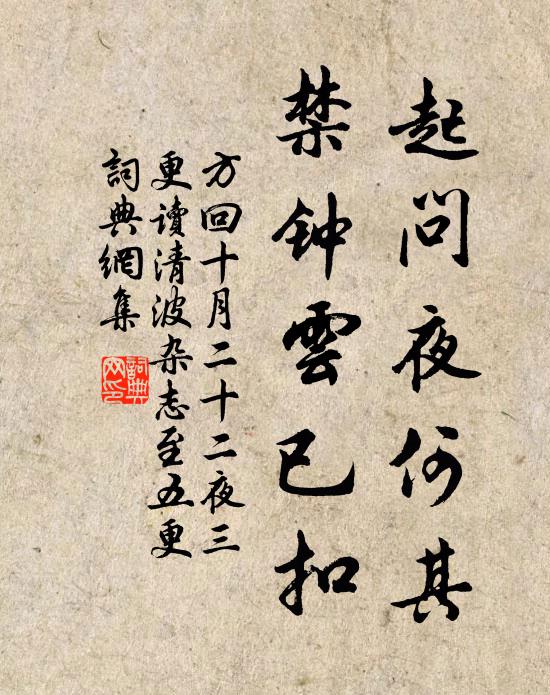 起問夜何其
禁钟雲已扣
方回十月二十二夜三
更读清波杂志至五更
詞典網集
詞典
网印